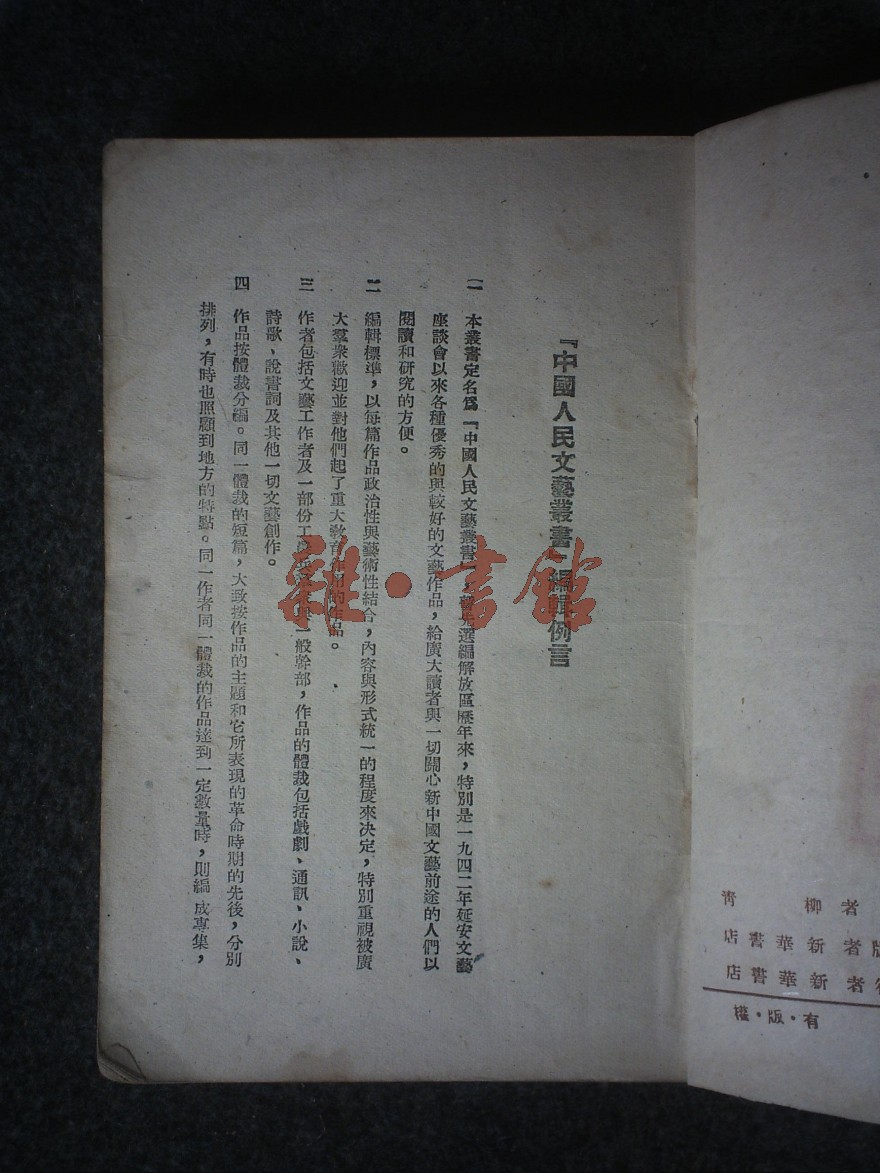 『中國人民文藝叢書』編輯例言
一　本叢書定名爲『中國人民文藝叢書』，先選編解放區歷年來，特別是一九四二年延安文藝
座談會以來各種優秀的與較好的文藝作品，給廣大讀者與一切關心新中國文藝前途的人們以
閱讀和研究的方便。
二　編輯標準，以每篇作品政治性與藝術性結合，內容與形式統一的程度來决定，特別重視被廣
大羣衆歡迎並對他們起了重大教育作用的作品。
三　作者包括文藝工作者及一部份工農兵與一般幹部，作品的體裁包括戲劇、通訊、小說、
詩歌、說書詞及其他一切文藝創作。
四　作品按體裁分編。同一體裁的短篇，大致按作品的主題和它所表現的革命時期的先後，分別
排列，有時也照顧到地方的特點。同一作者同一體裁的作品達到一定數量時，則編成專集，
雜·書館
者 柳 青
版者 新華書店
者 新華書店
有·版·權